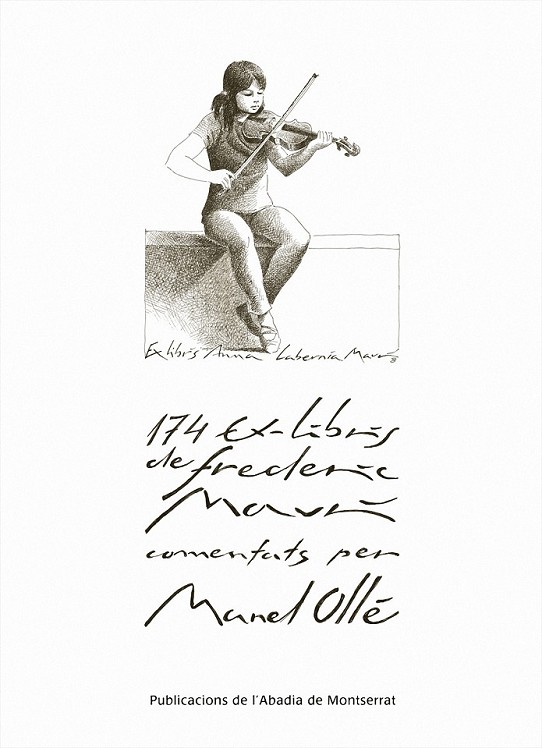 Ex libris Anna Labernia Mauri
174 ex-libris
de frederic
Mauri
comentats per
Manel Ollé
Publicacions de l'Abadia de Montserrat